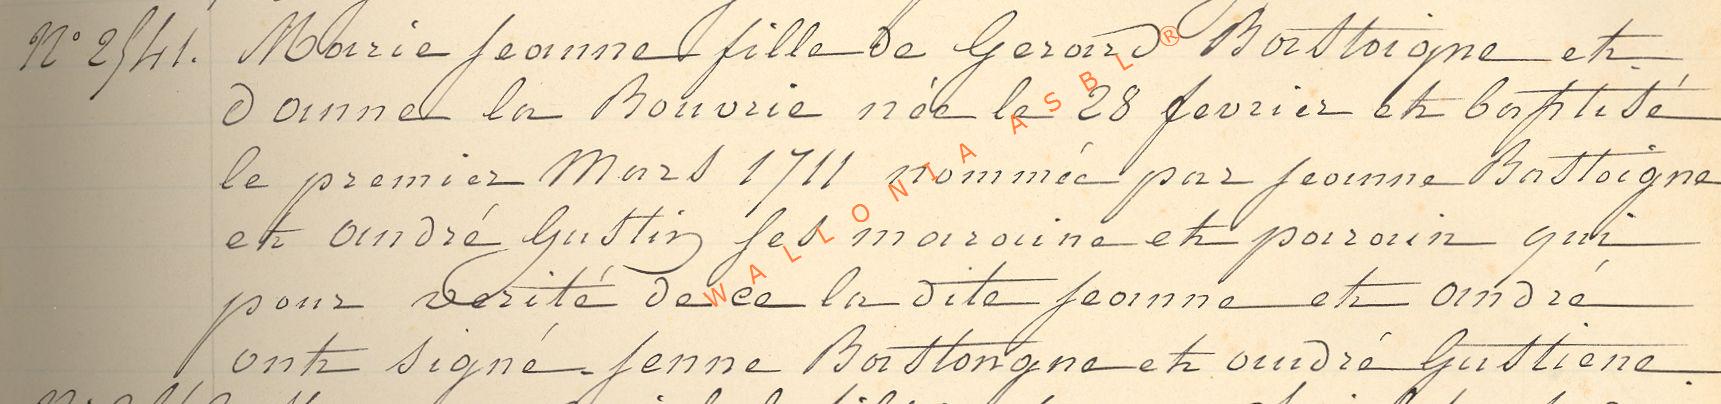 N° 2541. Marie jeanne fille de Gerard Bastoigne et
d'anne la Bouvrie née le 28 fevrier et baptisé
le premier Mars 1711 nommée par jeanne Bastoigne
et andré Gustin ses maraine et parain qui
pour verité de ce la dite jeanne et andré
ont signé. jenne Bastongne et andré Gustiene
WALLONIA ASBL®